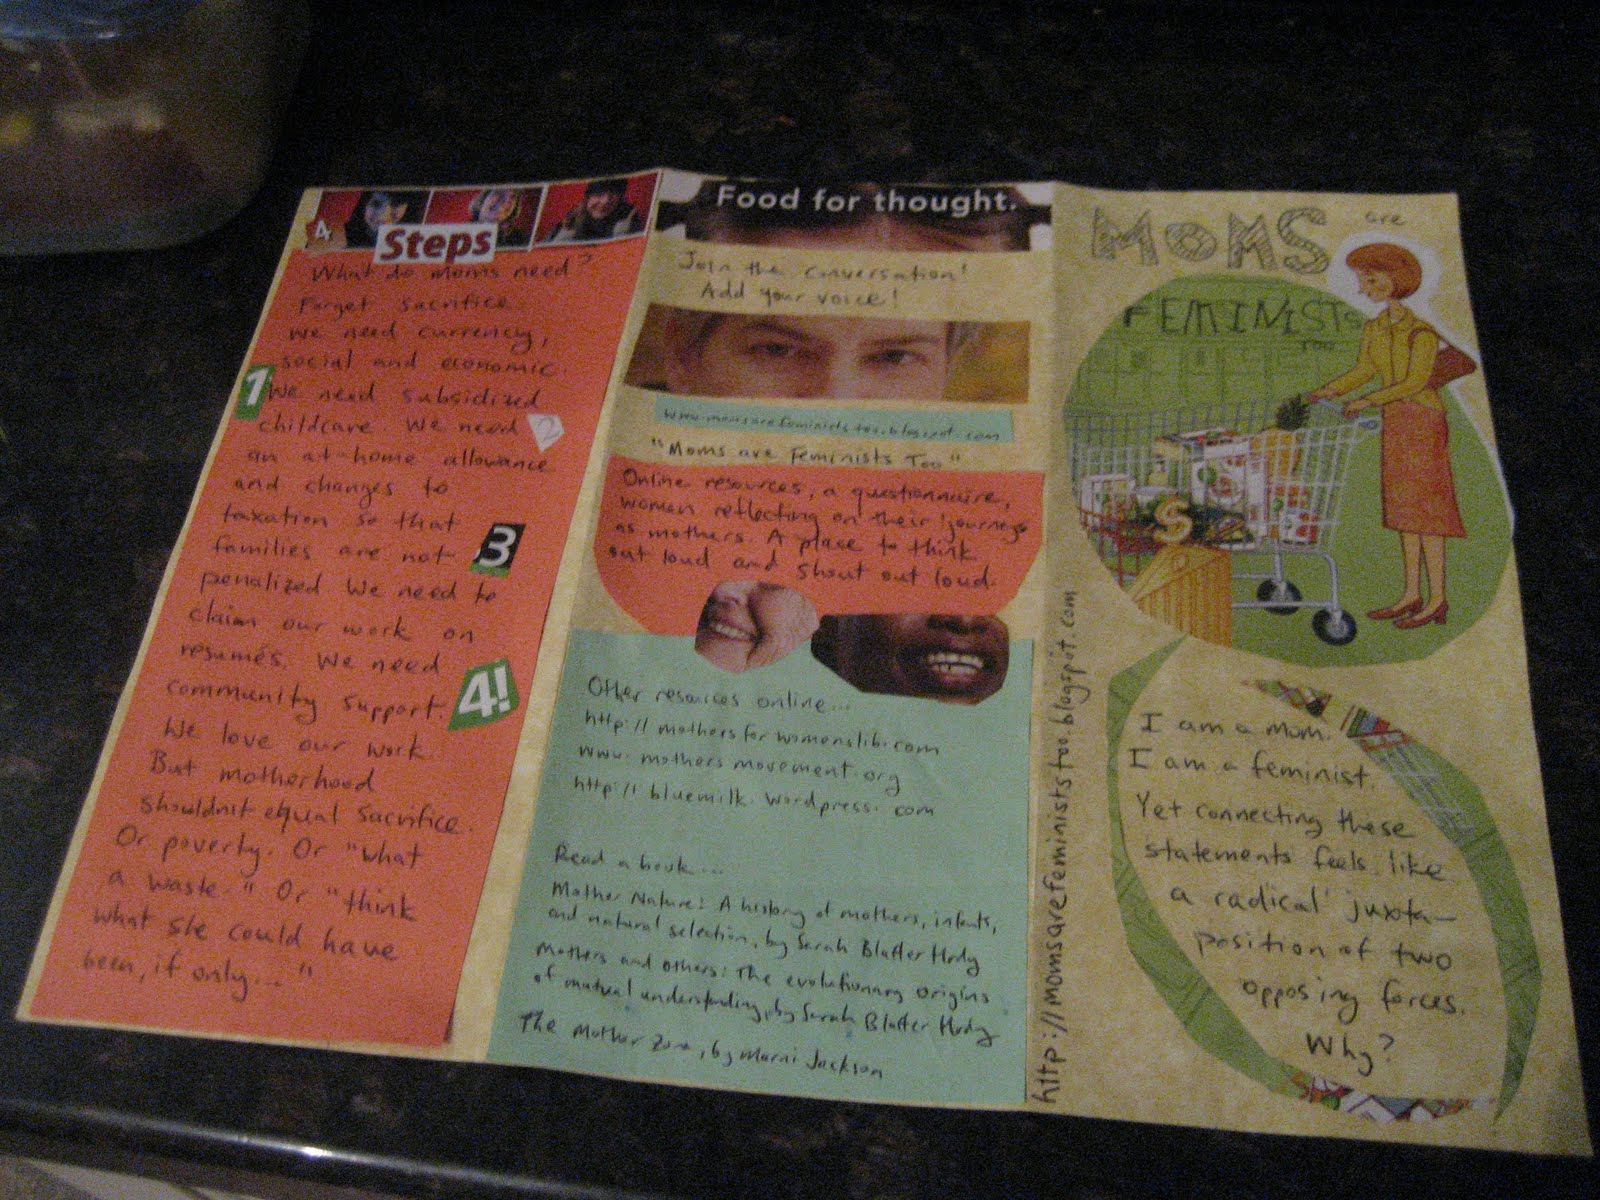 4 Steps
What do moms need?
Forget sacrifice.
We need currency,
social and economic.
1 We need subsidized
childcare. We need 2
an at-home allowance
and changes to
taxation so that
families are not 3
penalized. We need to
claim our work on
resumés. We need
community support. 4!
We love our work.
But motherhood
shouldn't equal sacrifice.
Or poverty. Or "what
a waste." Or "think
what she could have
been, if only..."
Food for thought.
Join the conversation!
Add your voice!
www.momsarefeministstoo.blogspot.com
"Moms are Feminists Too"
Online resources, a questionnaire,
women reflecting on their journeys
as mothers. A place to think
out loud and shout out loud.
Other resources online...
http://mothersforwomenslib.com
www.mothersmovement.org
http://bluemilk.wordpress.com
Read a book...
Mother Nature: A history of mothers, infants,
and natural selection, by Sarah Blaffer Hrdy
Mothers and others: The evolutionary origins
of mutual understanding, by Sarah Blaffer Hrdy
The Mother Zone, by Marni Jackson
http://momsarefeministstoo.blogspot.com
MOMS are
FEMINISTS
TOO
$
I am a mom.
I am a feminist.
Yet connecting these
statements feels like
a radical juxta-
position of two
opposing forces.
Why?